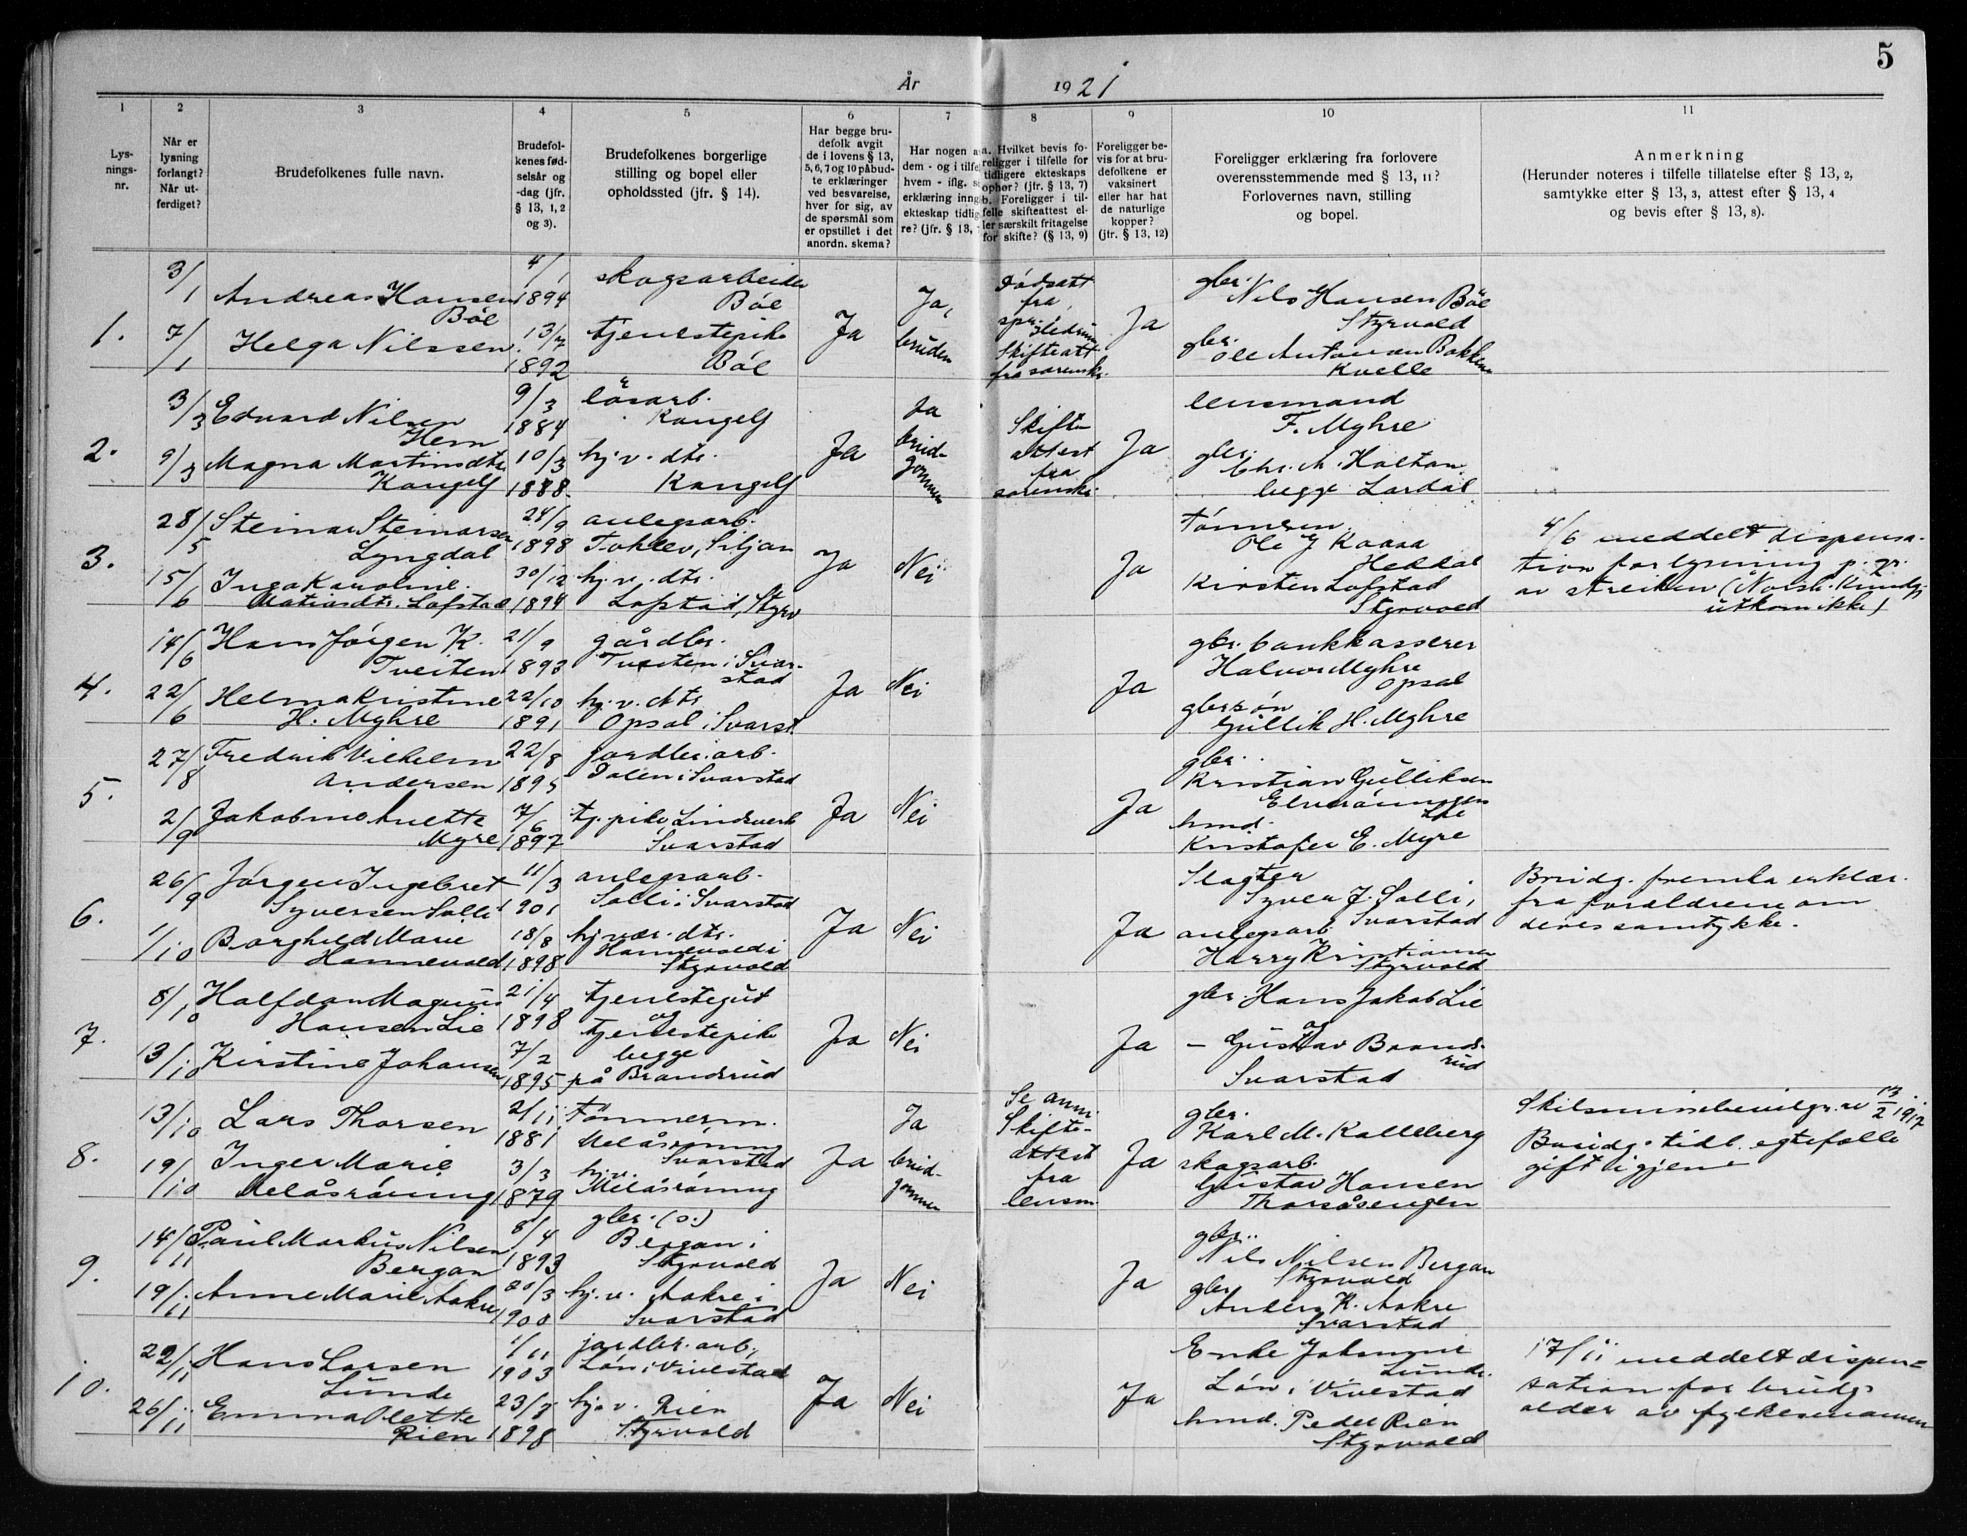 5
År 1921
1 2 3 4 5 6 7 8 9 10 11
Lysnings-nr.
Når er lysning forlangt? Når utferdiget?
Brudefolkenes fulle navn.
Brudefolkenes fødselsår og -dag (jfr. § 13, 1, 2 og 3).
Brudefolkenes borgerlige stilling og bopel eller opholdssted (jfr. § 14).
Har begge brudefolk avgit de i lovens § 13, 5, 6, 7 og 10 påbudte erklæringer ved besvarelse, hver for sig, av de spørsmål som er opstillet i det anordn. skema?
Har nogen a
dem - og i tilfel
hvem - iflg. s
erklæring inng
ekteskap tidlig
re? (jfr. § 13,
a. Hvilket bevis foreligger i tilfelle for tidligere ekteskaps ophør? (jfr. § 13, 7)
b. Foreligger i tilfelle skifteattest eller særskilt fritagelse for skifte? (§ 13, 9)
Foreligger bevis for at brudefolkene er vaksinert eller har hat de naturlige kopper? (jfr. § 13, 12)
Foreligger erklæring fra forlovere overensstemmende med § 13, 11? Forlovernes navn, stilling og bopel.
Anmerkning
(Herunder noteres i tilfelle tillatelse efter § 13, 2,
samtykke etter § 13, 3, attest efter § 13, 4
og bevis efter § 13, 8).
1.
3/1
7/1
Andreas Hansen
Böe
Helga Nilssen
4/1
1894
13/7
1892
skogsarbeider
Böe
tjenestepike
Böe
Ja
Ja,
bruden
Dödsatt
fra
Skifteatt
fra sorenskr.
Ja
gbr.
Nils Hansen Böe
Styrvold
gbr.
Ole Antonsen Bakken
Kvelle
2.
3/3
9/3
Edvard Nilsen
Hem
Magna Martinsdtr.
Kongelf
9/3
1884
10/3
1888
lösarb.
Kongelf
hj. v. dtr.
Kongelf
Ja
Ja
brud-
gommen
Skifte
attest
fra
sorenskr.
Ja
lensmand
F. Myhre
gbr.
Chr. A. Holtan
begge Lardal
3.
28/5
15/6
Steinar Steinarsen
Lyngdal
Inga Karoline
Matiasdtr. Lofstad
24/9
1898
30/12
1894
anlegsarb.
Siljan
hj. v. dtr.
Lofstad, Styrv
Ja
Nei
Ja
Ole J Kaasa
Heddal
Kirsten Lofstad
Styrvold
4/6 meddelt dispensa-
tion for lysning p. gr.
av streiken (Norsk. Kundgj
utkom ikke)
4.
14/6
22/6
Hans Jörgen K.
Tveiten
Helma Kristine
H. Myhre
21/9
1893
22/10
1891
gårdbr.
Tveiten i Svar-
stad
hj. v. dtr
Opsal i Svarst.
Ja
Nei
Ja
gbr. bankkasserer
Halvor Myhre
Opsal
gbrsön
Gullik H. Myhre
5.
27/8
2/9
Fredrik Vilhelm
Andersen
Jakobine Anette
Myre
22/8
1895
7/6
1897
jordbr. arb.
Dalen i Svarstad
tj. pike Lindsverk
Svarstad
Ja
Nei
Ja
gbr.
Kristian Gulliksen
hmd.
Kristofer E. Myre
6.
26/9
1/10
Jörgen Ingebret
Syversen Solli
Borghild Marie
Hannevold
11/3
1901
18/8
1898
anlegsarb.
Solli i Svarstad
hj. vær. dtr.
Hannevold i
Styrvold
Ja
Nei
Ja
Slagter
Syver J. Solli,
Svarstad
anlegsarb
Harry Kristiansen
Styrvold
Brudg. fremla erklær.
fra forældrene om
deres samtykke.
7.
8/10
13/10
Halfdan Magnus
Hansen Lie
Kirstine Johansen
21/4
1898
7/2
1895
tjenestegut
og
tjenestepike
begge
på Brandsrud
Ja
Nei
Ja
gbr. Hans Jakob Lie
og
— Gustav Brands-
rud
Svarstad
8.
13/10
19/10
Lars Thorsen
Inger Marie
Melåsröning
2/11
1881
3/3
1879
Tömmerm.
Melåsröning
Svarstad
hj. v.
Melåsröning
Ja
Ja
brud-
gommen
Se anm.
Skifte-
attest
fra
lensm
Ja
gbr.
Karl M. Kalleberg
skogsarb.
Gustav Hansen
Thorsåsengen
Skilsmissebevilgn. av 13/2 1917
Brudg. tidl. egtefælle
gift igjen
9.
14/11
19/11
Paul Markus Nilsen
Bergan
Anne Marie Aakre
8/4
1893
20/3
1900
gbr. (s.)
Bergan i
Styrvold
hj. v. Aakre i
Svarstad
Ja
Nei
Ja
gbr.
Nils Nilsen Bergan
Styrvold
gbr
Anders K. Aakre
Svarstad
10.
22/11
26/11
Hans Larsen
Lunde
Emma Olette
Rien
1/11
1903
23/8
1898
jordbr. arb.
Lön i Vivestad
hj. v. Rien
Styrvold
Ja
Nei
Ja
Enke Johanne
Lunde
Lön i Vivestad
hmd. Peder Rien
Styrvold
17/11 meddelt dispen-
sation for brudg.
alder av fylkesmannen